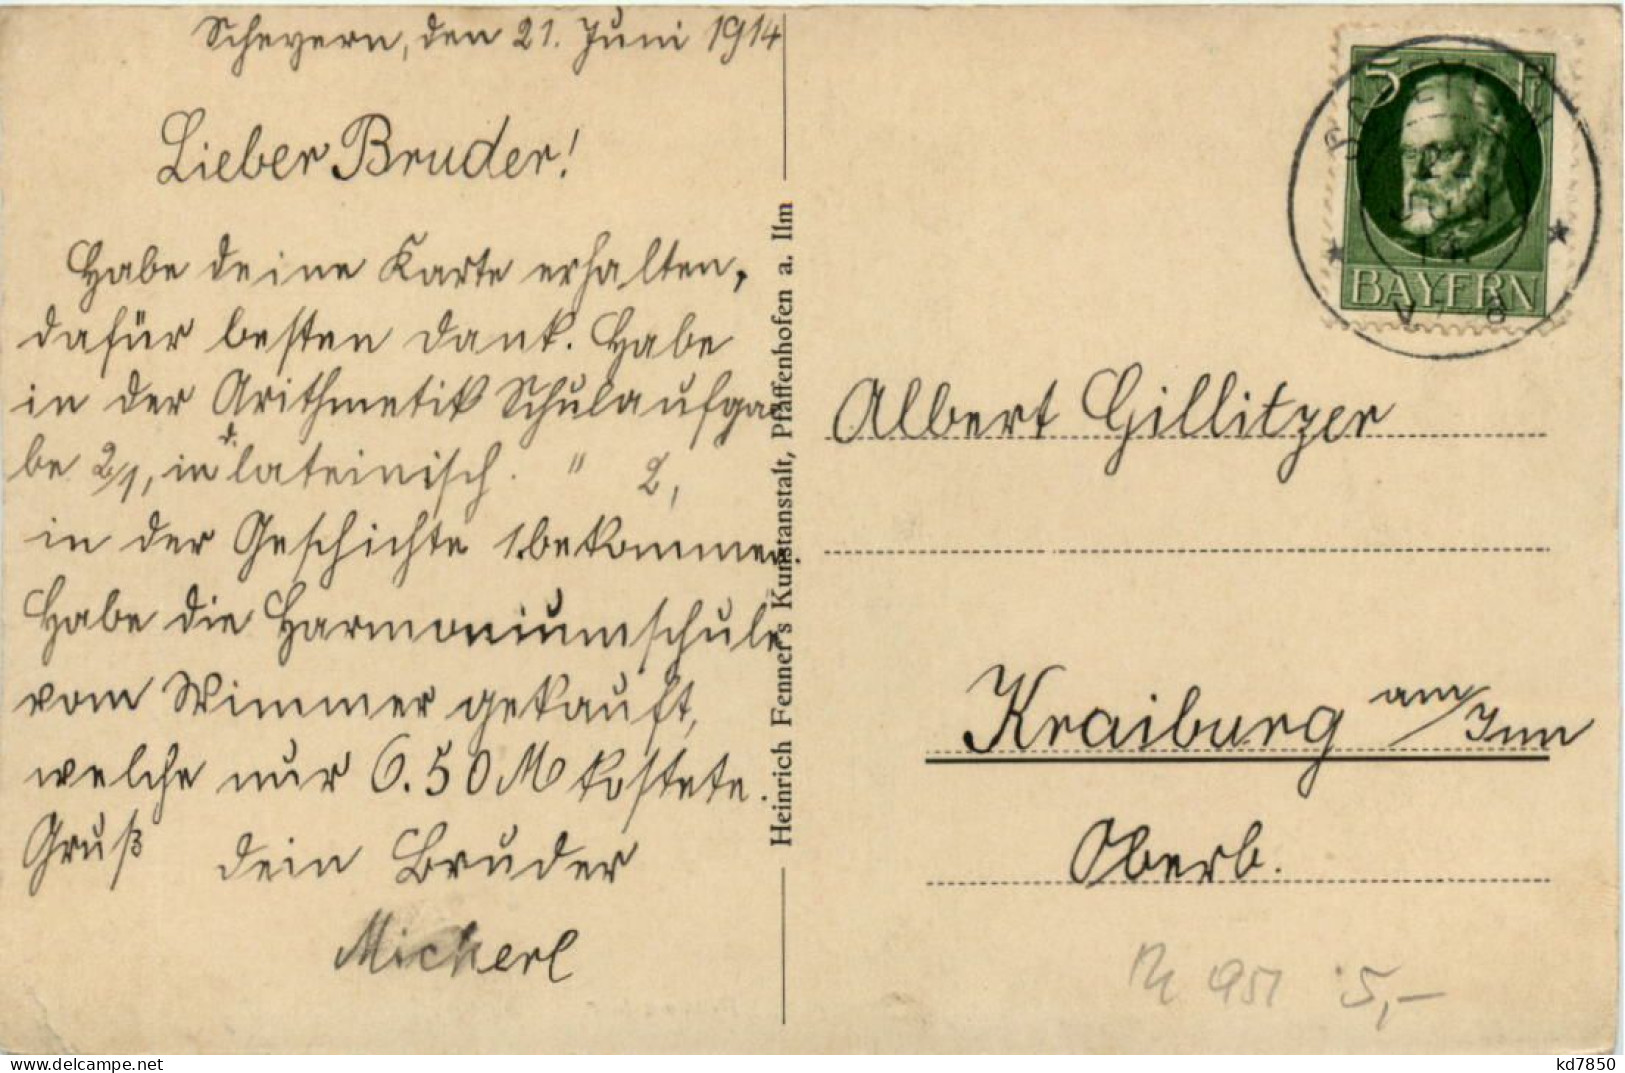 Scheyern, den 21. Juni 1914
Lieber Bruder!
Habe deine Karte erhalten,
dafür besten Dank. Habe
in der Arithmetik Schulaufga
be 2/1, in d. lateinisch. " 2,
in der Geschichte 1 bekommen.
Habe die Harmoniumschule
vom Wimmer gekauft,
welche nur 6.50 M kostete.
Gruß dein Bruder
Micherl
Heinrich Fenner's Kunstanstalt, Pfaffenhofen a. Ilm
5 Pf
BAYERN
SCHEYERN
22
JUN
14
V 7-8
Albert Gillitzer
Kraiburg am/Inn
Oberb.
951 5,-
www.delcampe.net
kd7850